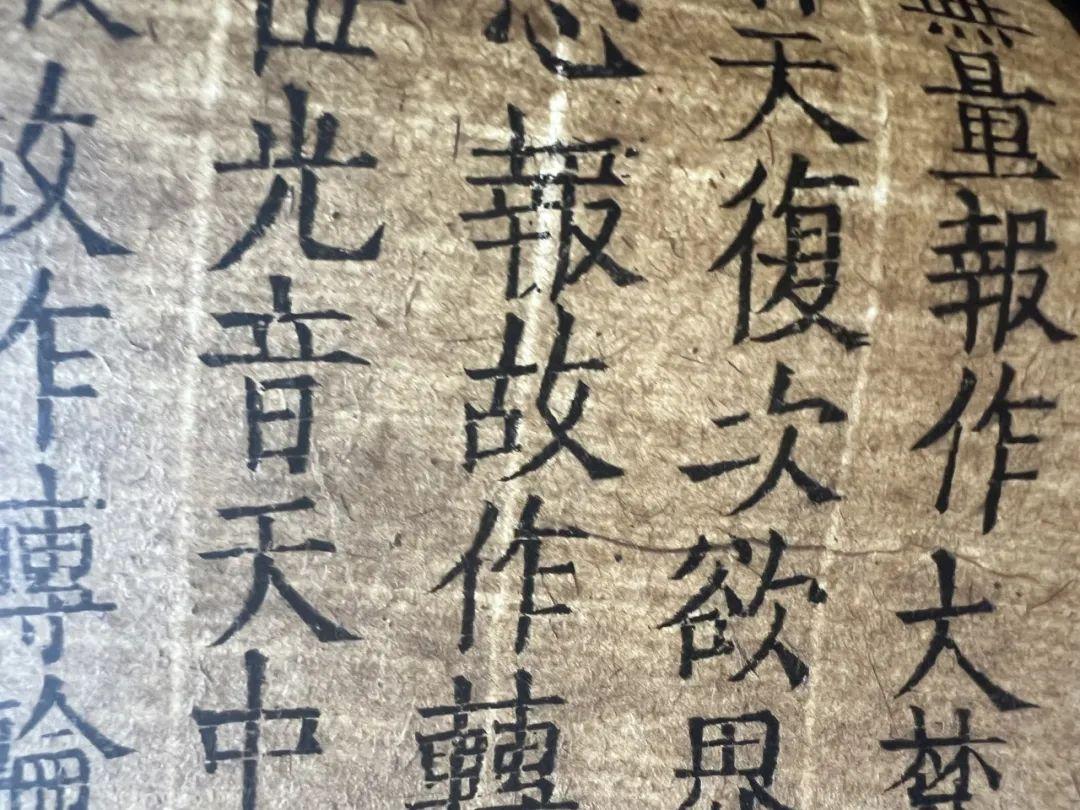 無量報作大梵
天復次欲界
報故作轉
世光音天中
故作轉輪